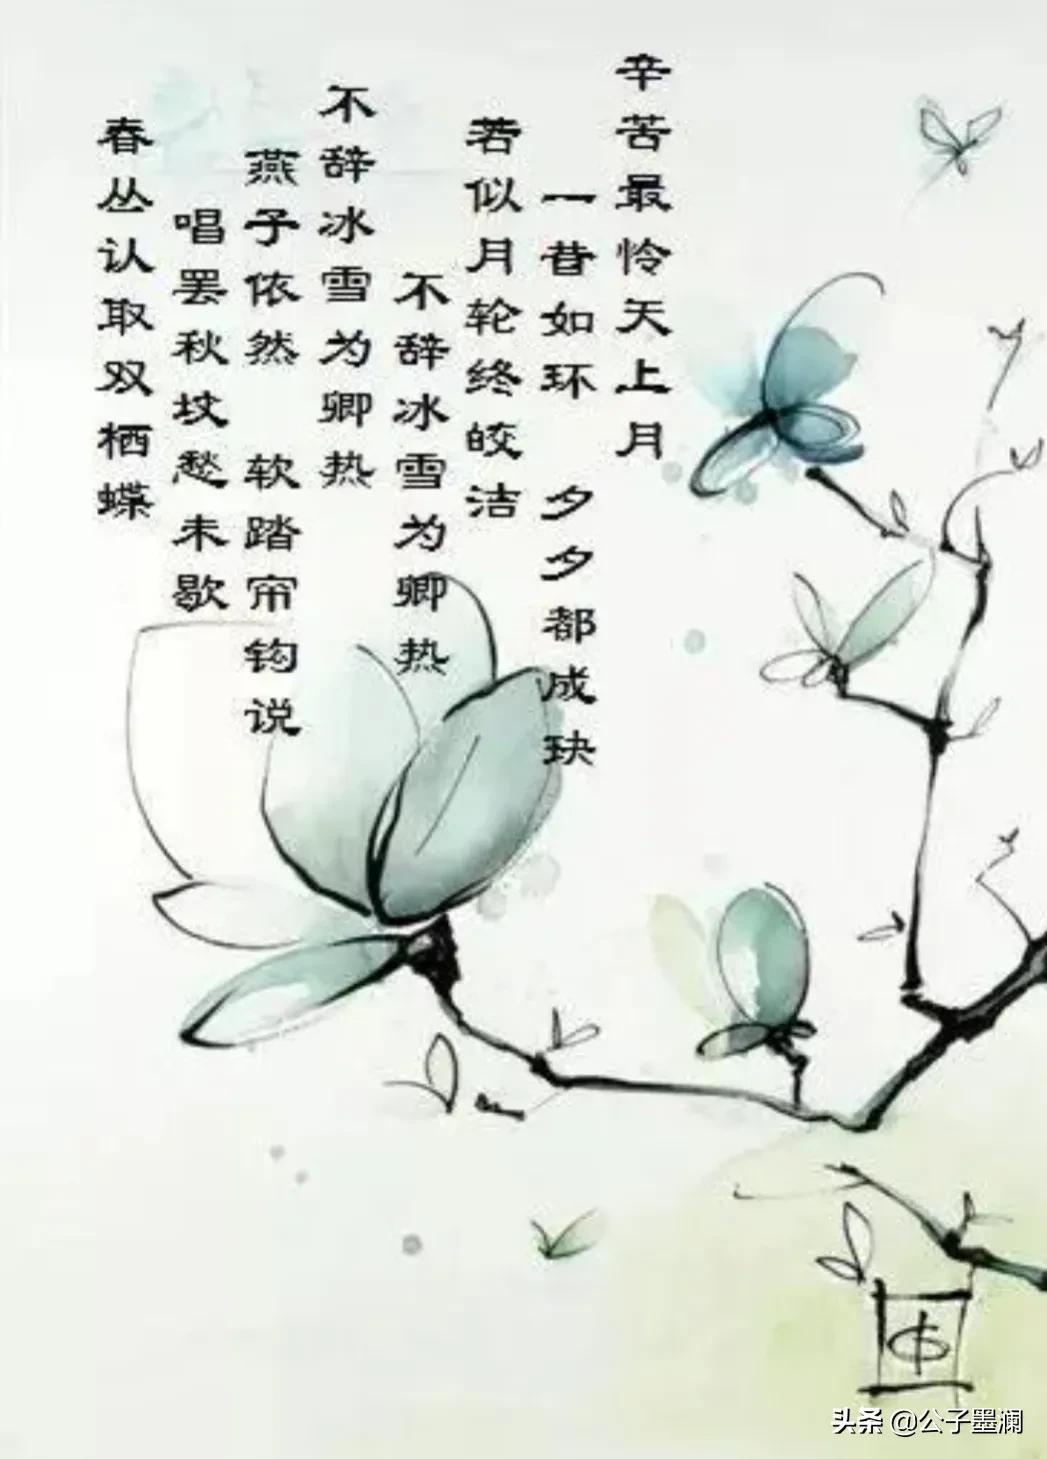 辛苦最怜天上月
一昔如环 夕夕都成玦
若似月轮终皎洁
不辞冰雪为卿热
不辞冰雪为卿热
燕子依然 软踏帘钩说
唱罢秋坟愁未歇
春丛认取双栖蝶
头条 @公子墨澜